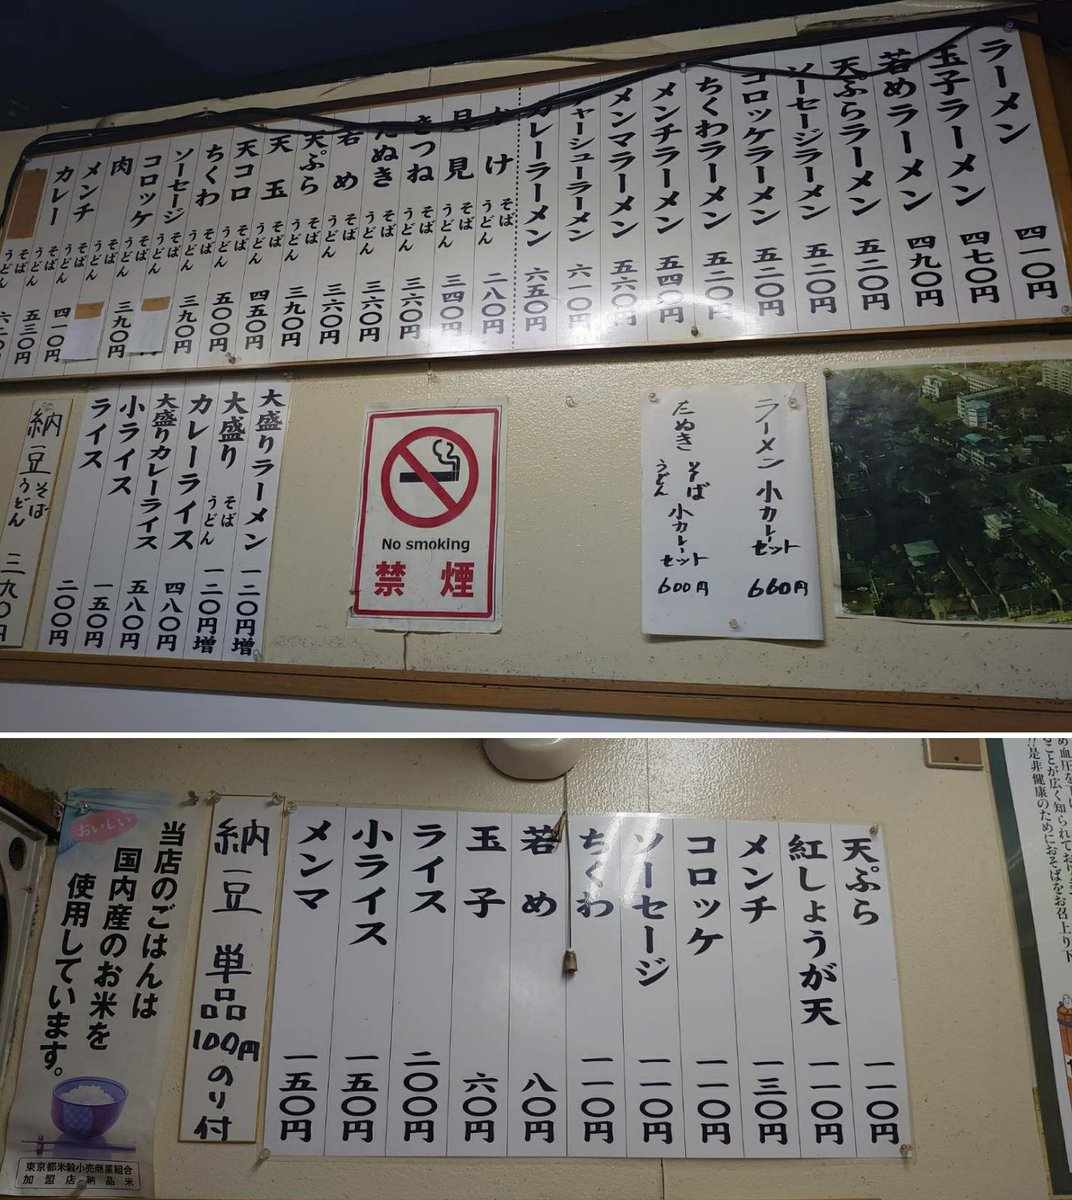 ラーメン 四一〇円
玉子ラーメン 四七〇円
若めラーメン 四九〇円
天ぷらラーメン 五二〇円
ソーセージラーメン 五二〇円
コロッケラーメン 五二〇円
ちくわラーメン 五二〇円
メンチラーメン 五四〇円
メンマラーメン 五六〇円
チャーシューラーメン 六一〇円
カレーラーメン 六五〇円
かけ そば うどん 二八〇円
月見 そば うどん 三四〇円
きつね そば うどん 三六〇円
たぬき そば うどん 三六〇円
若め そば うどん 三六〇円
天ぷら そば うどん 三九〇円
天玉 そば うどん 四五〇円
天コロ そば うどん 五〇〇円
ちくわ そば うどん 三九〇円
ソーセージ そば うどん
コロッケ そば うどん 三九〇円
肉 そば うどん
メンチ そば うどん 四一〇円
カレー そば うどん 五三〇円
そば うどん
大盛りラーメン 一二〇円増
大盛り そば うどん 一二〇円増
カレーライス 四八〇円
大盛りカレーライス 五八〇円
小ライス 一五〇円
ライス 二〇〇円
納豆 そば うどん 三九〇円
No smoking
禁煙
ラーメン 小カレーセット 660円
たぬき そば うどん 小カレーセット 600円
天ぷら 一一〇円
紅しょうが天 一一〇円
メンチ 一三〇円
コロッケ 一一〇円
ソーセージ 一一〇円
ちくわ 一一〇円
若め 八〇円
玉子 六〇円
ライス 二〇〇円
小ライス 一五〇円
メンマ 一五〇円
納豆 単品100円のり付
おいしい
当店のごはんは
国内産のお米を
使用しています。
東京都米穀小売商業組合
加盟店納品米
ることが広く知られており
是非健康のためにおそばをお召上り下